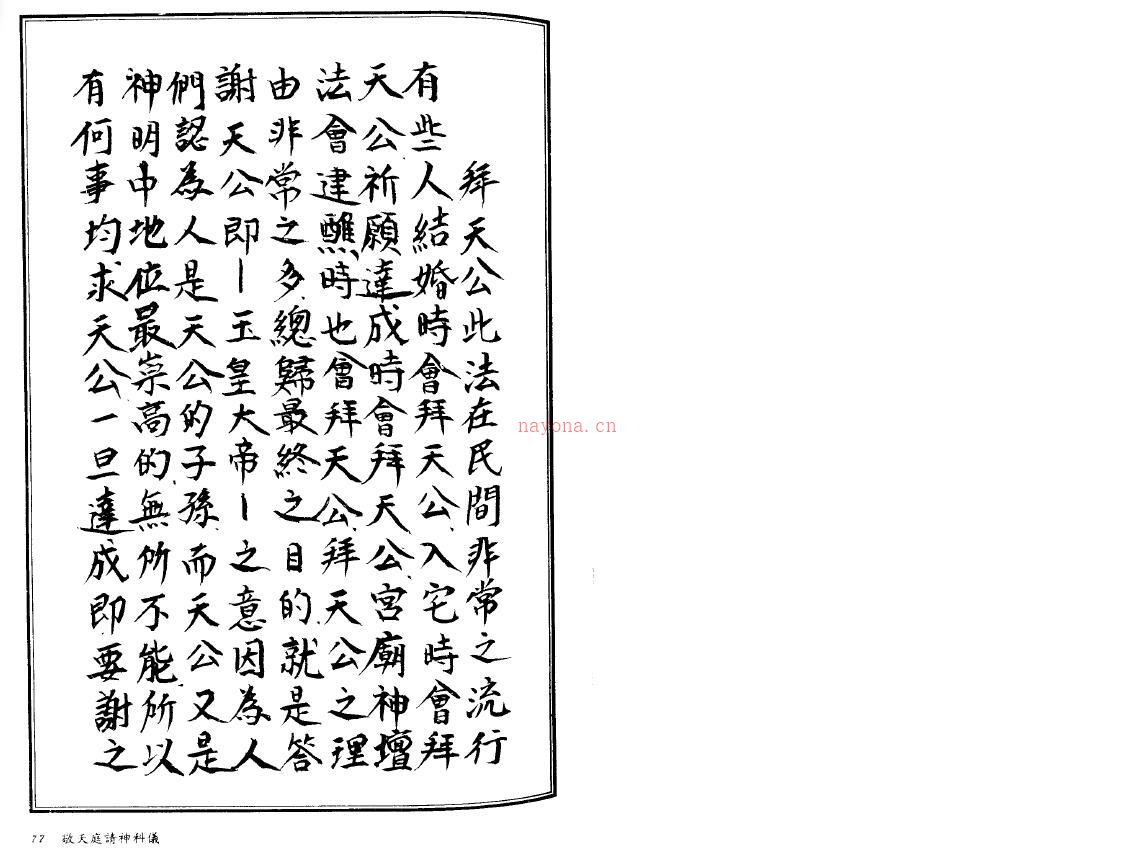 拜天公此法在民間非常之流行
有些人結婚時會拜天公入宅時會拜
天公祈願達成時會拜天公宮廟神壇
法會建醮時也會拜天公拜天公之理
由非常之多總歸最終之目的就是答
謝天公即｜玉皇大帝｜之意因為人
們認為人是天公的子孫而天公又是
神明中地位最崇高的無所不能所以
有何事均求天公一旦達成即要謝之
nayona.cn
77 敬天庭請神科儀